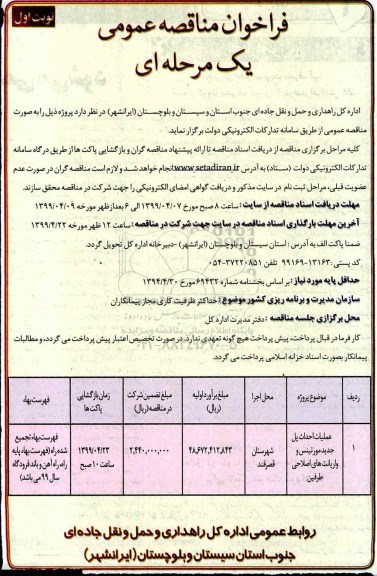 نوبت اول
فراخوان مناقصه عمومی
یک مرحله ای
اداره کل راهداری و حمل و نقل جاده ای جنوب استان و سیستان و بلوچستان (ایرانشهر) در نظر دارد پروژه ذیل را به صورت
مناقصه عمومی از طریق سامانه تدارکات الکترونیکی دولت برگزار نماید.
کلیه مراحل برگزاری مناقصه از دریافت اسناد مناقصه تا ارائه پیشنهاد مناقصه گران و بازگشایی پاکت ها از طریق درگاه سامانه
تدارکات الکترونیکی دولت (ستاد) به آدرس www.setadiran.ir انجام خواهد شد و لازم است مناقصه گران در صورت عدم
عضویت قبلی، مراحل ثبت نام در سایت مذکور و دریافت گواهی امضای الکترونیکی را جهت شرکت در مناقصه محقق سازند.
مهلت دریافت اسناد مناقصه از سایت: ساعت ۸ صبح مورخ ۱۳۹۹/۰۴/۰۷ الی ۶ بعدازظهر مورخه ۱۳۹۹/۰۴/۰۹
آخرین مهلت بارگذاری اسناد مناقصه در سایت جهت شرکت در مناقصه: ساعت ۱۲ ظهر مورخه ۱۳۹۹/۴/۲۲
ضمنا پاکت الف به آدرس: استان سیستان و بلوچستان (ایرانشهر) -دبیرخانه اداره کل تحویل گردد.
کد پستی: ۱۳۱۶۳-۹۹۱۶۹ تلفن ۳۷۲۲۰۸۵۱-۰۵۴
حداقل پایه مورد نیاز: بر اساس بخشنامه شماره ۶۹۴۳۲ مورخ ۱۳۹۴/۴/۳۰
سازمان مدیرت و برنامه ریزی کشور موضوع: حداکثر ظرفیت کاری مجاز پیمانکاران
محل برگزاری جلسه مناقصه: دفتر مدیرت اداره کل
کارفرما در قبال پرداخت، پیش پرداخت هیچ گونه تعهدی ندارد. در صورت تخصیص اعتبار پیش پرداخت می گردد، و مطالبات
پیمانکار بصورت اسناد خزانه اسلامی پرداخت می گردد.
ردیف موضوع پروژه محل اجرا مبلغ برآورد اولیه (ریال) مبلغ تضمین شرکت در مناقصه (ریال) زمان بازگشایی پاکت ها فهرست بهاء
۱ عملیات احداث پل جدید مورتینس و واریانت های اصلاحی طرفین شهرستان قصرقند ۴۸,۶۷۲,۴۱۲,۸۴۳ ۲,۴۴۰,۰۰۰,۰۰۰ ۱۳۹۹/۰۴/۲۳ ساعت ۱۰ صبح فهرست بهاء تجمیع شده راه (فهرست بهاء پایه راه، راه آهن و باند فرودگاه سال ۹۹ می باشد)
روابط عمومی اداره کل راهداری و حمل و نقل جاده ای
جنوب استان سیستان و بلوچستان (ایرانشهر)